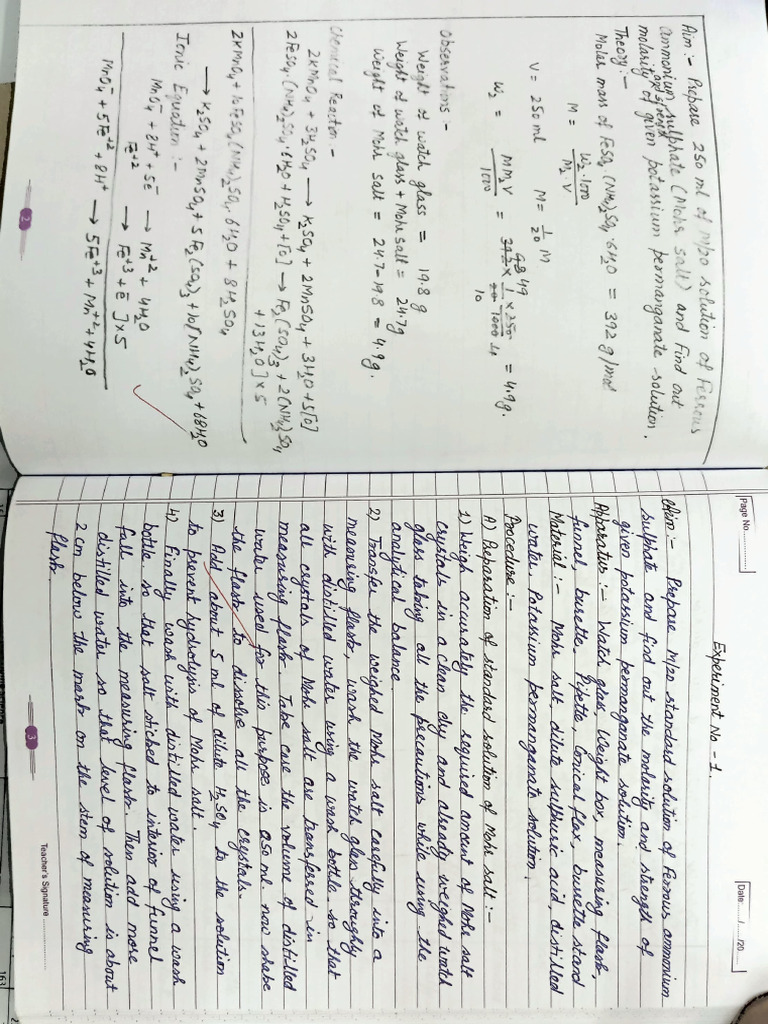 Aim:- Prepare 250 ml of M/20 solution of Ferrous
Ammonium sulphate (Mohr salt) and find out
molarity and strength of given potassium permanganate solution.
Theory:-
Molar mass of FeSO4.(NH4)2SO4.6H2O = 392 g/mol
M = W2.1000 / M2 V
V = 250 ml M = 1/20 M
W2 = M M2 V / 1000 = 392 × 1 × 250 / 20 × 1000 = 4.9g.
Observations:-
Weight of watch glass = 19.8 g
Weight of watch glass + Mohr salt = 24.7g
Weight of Mohr salt = 24.7-19.8 = 4.9g.
Chemical Reaction:-
2KMnO4 + 3H2SO4 → K2SO4 + 2MnSO4 + 3H2O + 5[O]
2FeSO4.(NH4)2SO4.6H2O + H2SO4 + [O] → Fe2(SO4)3 + 2(NH4)2SO4
+ 13H2O] × 5
2KMnO4 + 10FeSO4(NH4)2SO4.6H2O + 8H2SO4
→ K2SO4 + 2MnSO4 + 5Fe2(SO4)3 + 10(NH4)2SO4 + 68H2O
Ionic Equation:-
MnO4- + 8H+ + 5e- → Mn+2 + 4H2O
Fe+2 → Fe+3 + e- ] × 5
MnO4- + 5Fe+2 + 8H+ → 5Fe+3 + Mn+2 + 4H2O
2
Page No.
Date: / /20
Experiment No - 1.
Aim:- Prepare M/20 standard solution of ferrous ammonium
sulphate and find out the molarity and strength of
given potassium permanganate solution.
Apparatus:- Watch glass, Weight box, measuring flask,
funnel, burette, Pipette, Conical flax, burette stand
Material:- Mohr salt, dilute sulphuric acid, distilled
water, Potassium permanganate solution.
Procedure:-
A) Preparation of standard solution of Mohr salt:-
1) Weigh accurately the required amount of Mohr salt
crystals in a clean dry and already weighed watch
glass taking all the precautions while using the
analytical balance.
2) Transfer the weighed Mohr salt carefully into a
measuring flask, wash the watch glass throughly
with distilled water using a wash bottle. so that
all crystals of Mohr salt are transferred in
measuring flask. Take care the volume of distilled
water used for this purpose is 050 ml. now shake
the flask to dissolve all the crystals.
3) Add about 5 ml of dilute H2SO4 to the solution
to prevent hydrolysis of Mohr salt.
4) Finally wash with distilled water using a wash
bottle so that salt sticked to interior of funnel
fall into the measuring flask. Then add more
distilled water so that level of solution is about
2 cm below the mark on the stem of measuring
flask.
3
Teacher's Signature